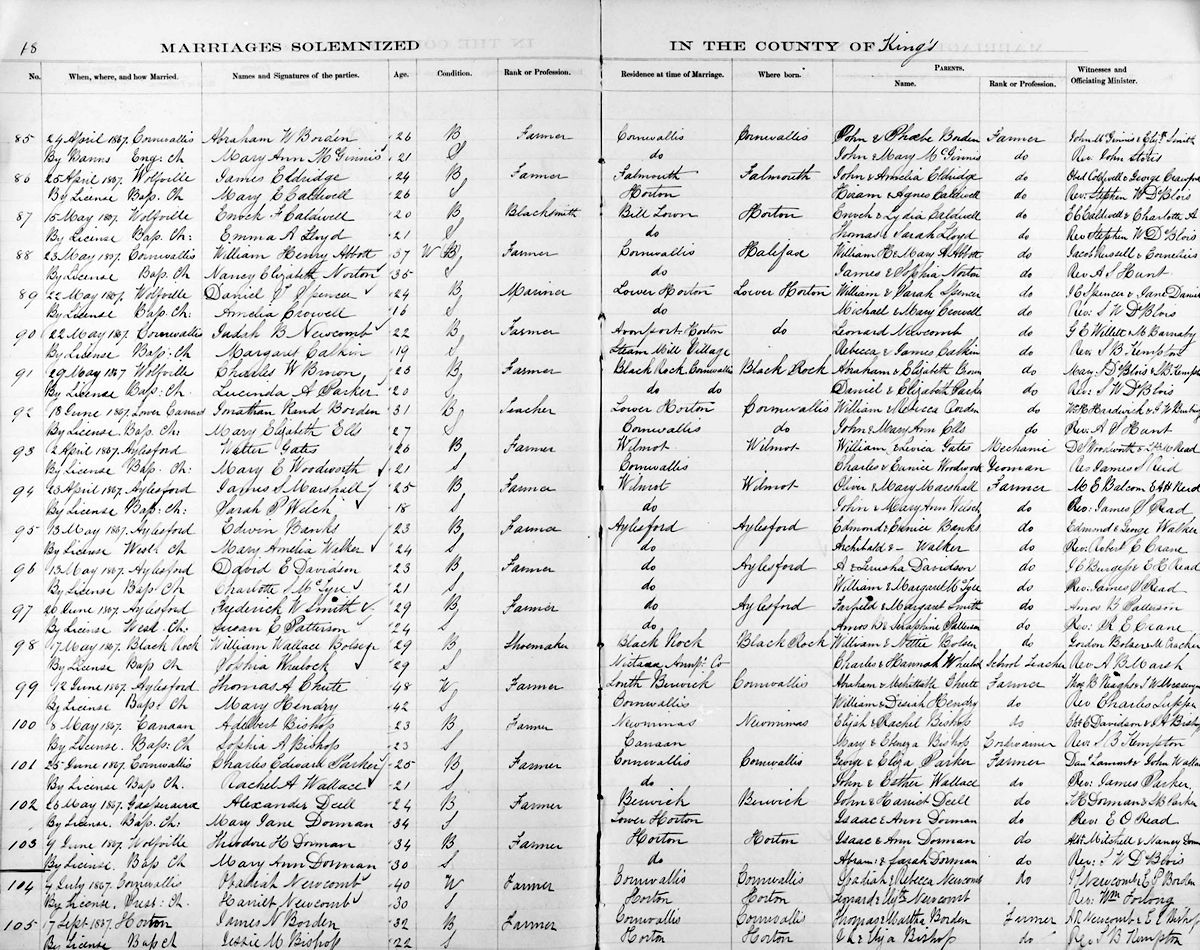 18 MARRIAGES SOLEMNIZED IN THE COUNTY OF King's
No. When, where, and how Married. Names and Signatures of the parties. Age. Condition. Rank or Profession. Residence at time of Marriage. Where born. PARENTS. Name. Rank or Profession. Witnesses and Officiating Minister.
85 24 April 1867. Cornwallis Abraham W Borden 26 B Farmer Cornwallis Cornwallis John & Phoebe Borden Farmer John McGinnis & Smith
By Banns Eng: Ch Mary Ann McGinnis 21 S do John & Mary McGinnis do Rev. John Storrs
86 25 April 1867. Wolfville James Eldridge 24 B Farmer Falmouth Falmouth John & Amelia Eldridge do Obed Coldwell & George Crawford
By License Bap. Ch Mary E Caldwell 26 S Horton Hiram & Agnes Caldwell do Rev: Stephen W DeBlois
87 15 May 1867. Wolfville Enoch F Caldwell 20 B Blacksmith Bill Town Horton Enoch & Lydia Caldwell do E C Caldwell & Charlotte A
By License Bap. Ch: Emma A Lloyd 21 S do Thomas & Sarah Lloyd do Rev Stephen W DeBlois
88 23 May 1867. Cornwallis William Henry Abbott 37 W Farmer Cornwallis Halifax William H & Mary A Abbott do Jacob Russell & Cornelius
By License Bap. Ch Nancy Elizabeth Norton 35 S do James & Sophia Norton do Rev A S Hunt
89 22 May 1867. Wolfville Daniel Spencer 24 B Mariner Lower Horton Lower Horton William & Sarah Spencer do Spencer & Jane Daniel
By License Bap. Ch: Amelia Crowell 16 S do Michael & Mary Crowell do Rev. S W DeBlois
90 22 May 1867. Cornwallis Judah B Newcomb 22 B Farmer Avonport Horton do Leonard Newcomb do G E Willett & M Barnaby
By License Bap: Ch Margaret Calkin 19 S Steam Mill Village Rebecca & James Calkin do Rev: S B Kempton
91 29 May 1867 Wolfville Charles W Brown 23 B Farmer Black Rock Cornwallis Black Rock Abraham & Elizabeth Brown do Mary S DeBlois & S B Kempton
By License Bap: Ch: Lucinda A Parker 20 S do do Daniel & Elizabeth Parker do Rev: S W DeBlois
92 18 June 1867. Lower Canard Jonathan Rand Borden 31 B Teacher Lower Horton Cornwallis William & Rebecca Borden do Wm H Hardwick & J W
By License Bap. Ch: Mary Elizabeth Ells 27 S Cornwallis do John & Mary Ann Ells do Rev. A S Hunt
93 2 April 1867. Aylesford Walter Gates 26 B Farmer Wilmot Wilmot William & Levica Gates Mechanic D S Woodworth & Read
By License Bap. Ch: Mary E Woodworth 21 S Cornwallis Charles & Eunice Woodworth Yeoman Rev James S Read
94 23 April 1867. Aylesford James S Marshall 25 B Farmer Wilmot Wilmot Oliver & Mary Marshall Farmer M E Balcom & A H Read
By License Bap: Ch: Sarah P Welch 18 S do John & Mary Ann Welsch do Rev: James S Read
95 13 May 1867. Aylesford Edwin Banks 23 B Farmer Aylesford Aylesford Edmond & Eunice Banks do Edmond & George Walker
By License Wesl: Ch Mary Amelia Walker 24 S do Archibald & — Walker do Rev. Robert E Crane
96 13 May 1867. Aylesford David E Davidson 23 B Farmer do Aylesford A & Davidson do Burgess & E H Read
By License Bap: Ch Charlotte S McTyre 21 S do William & Margaret McTyre do Rev: James S Read
97 26 June 1867. Aylesford Frederick W Smith 29 B Farmer do Aylesford Fairfield & Margaret Smith do Amos B Patterson
By License Wesl: Ch: Susan E Patterson 24 S do Amos B & Seraphine Patterson do Rev: R E Crane
98 17 May 1867. Black Rock William Wallace Bolser 29 B Shoemaker Black Rock Black Rock William & Nettie Bolser do Gordon Bolser
By License Bap Ch Sophia Wheelock 29 S Nictaux Annp: Co Charles & Hannah Wheelock School Teacher Rev. A B Marsh
99 12 June 1867. Aylesford Thomas A Chute 48 W Farmer South Berwick Cornwallis Abraham & Mehittable Chute Farmer
By License Bap: Ch Mary Hendry 42 S Cornwallis William & Desiah Hendry do Rev Charles Tupper
100 8 May 1867. Canaan Adelbert Bishop 23 B Farmer Newminas Newminas Elijah & Rachel Bishop do Davidson & A Bishop
By License. Bap: Ch Sophia A Bishop 23 S Canaan Mary & Ebenezer Bishop Cordwainer Rev: S B Kempton
101 25 June 1867. Cornwallis Charles Edward Parker 25 B Farmer Cornwallis Cornwallis George & Eliza Parker Farmer & John Wallace
By License Bap Ch. Rachel A Wallace 21 S do John & Esther Wallace do Rev: James Parker
102 25 May 1867. Gaspereau Alexander Deell 24 B Farmer Berwick Berwick John & Harriet Deell do Dorman & Parker
By License. Bap. Ch. Mary Jane Dorman 34 S Lower Horton Isaac & Ann Dorman do Rev: E O Read
103 9 June 1867. Wolfville Theodore H Dorman 34 B Farmer Horton Horton Isaac & Ann Dorman do Mitchell & Nancy Dorman
By License Bap Ch Mary Ann Dorman 30 S do Abram: & Sarah Dorman do Rev: S W DeBlois
104 4 July 1867. Cornwallis Obadiah Newcomb 40 W Farmer Cornwallis Cornwallis Obadiah & Rebecca Newcomb do Newcomb & E P Borden
By License. Pres: Ch: Harriet Newcomb 30 S Horton Horton Leonard & Newcomb do Rev: Wm Forlong
105 17 Sept 1867. Horton James N Borden 32 B Farmer Cornwallis Cornwallis Thomas & Martha Borden Farmer Newcomb & Bishop
By License Bap Ch Jessie M Bishop 22 S Horton Horton & Eliza Bishop do Rev. S B Kempton